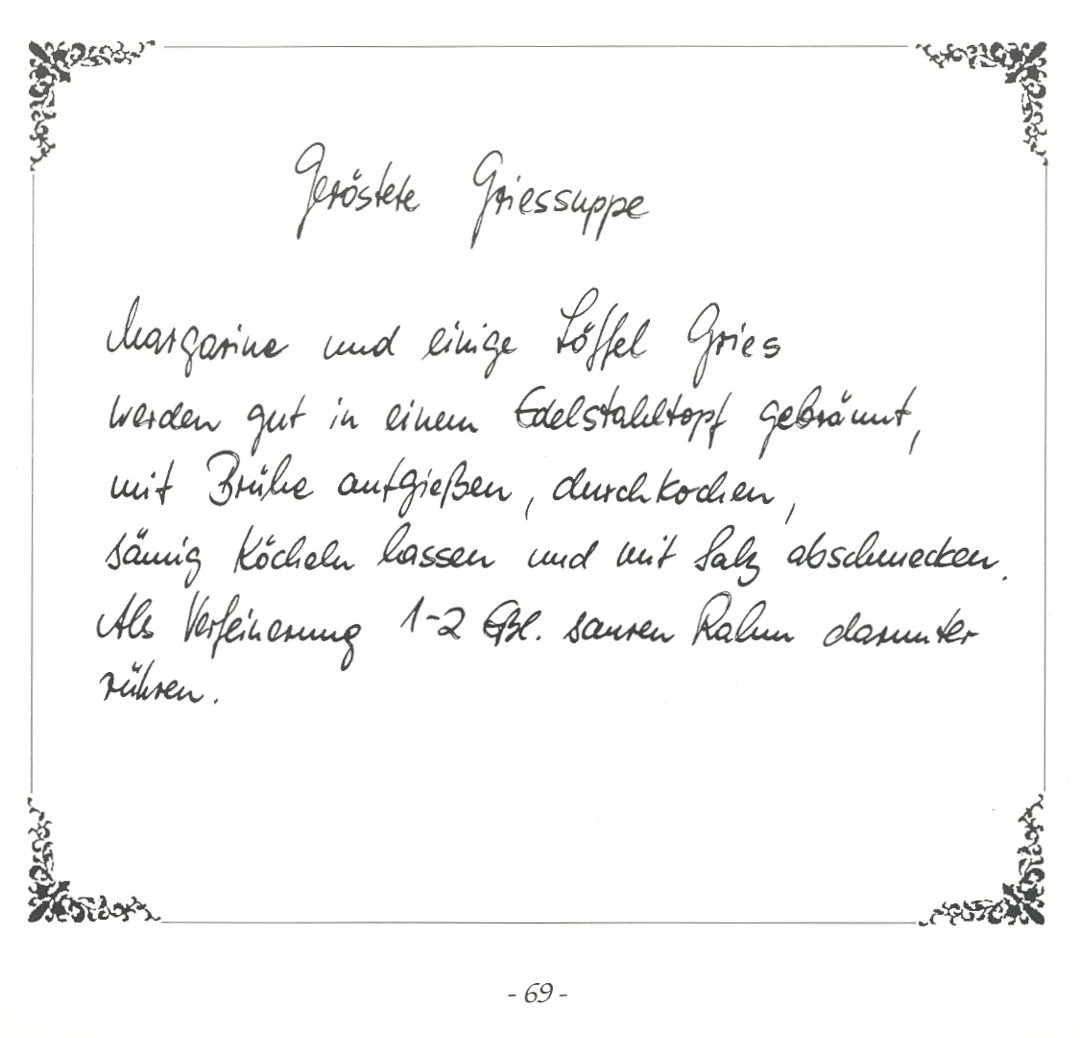 Geröstete Griessuppe
Margarine und einige Löffel Gries
werden gut in einem Edelstahltopf gebräunt,
mit Brühe aufgießen, durchkochen,
sämig köcheln lassen und mit Salz abschmecken.
Als Verfeinerung 1-2 Eßl. sauren Rahm darunter
rühren.
- 69 -